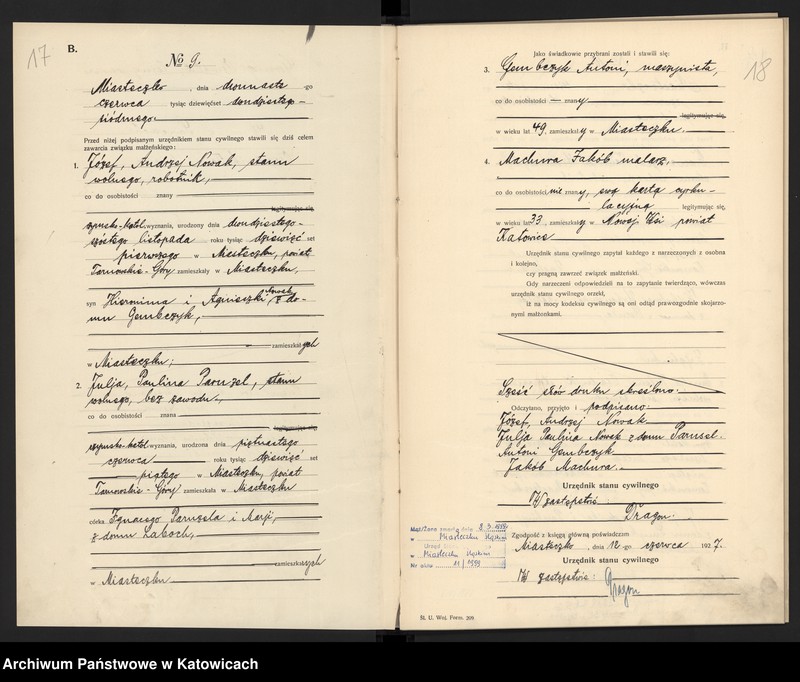 17
B.
No 9.
Miasteczko, dnia dwunasto -go
czerwca tysiąc dziewięćset dwudziestego-
siódmego.
Przed niżej podpisanym urzędnikiem stanu cywilnego stawili się dziś celem
zawarcia związku małżeńskiego:
1. Józef, Andrzej Nowak, stanu
wolnego, robotnik,
co do osobistości znany
legitymując się,
rzymsko-katol. wyznania, urodzony dnia dwudziestego-
szóstego listopada roku tysiąc dziewięć set
pierwszego w Miasteczku, powiat
Tarnowskie-Góry zamieszkały w Miasteczku,
syn Hieronima i Agnieszki Nowak, z do-
mu Gembczyk,
zamieszkałych
w Miasteczku;
2. Julja, Paulina Parusel, stanu
wolnego, bez zawodu,
co do osobistości znana
legitymując się,
rzymsko-katol. wyznania, urodzona dnia piętnastego
czerwca roku tysiąc dziewięć set
piątego w Miasteczku, powiat
Tarnowskie-Góry zamieszkała w Miasteczku
córka Ignacego Parusela i Marji,
z domu Laboch,
zamieszkałych
w Miasteczku
18
Jako świadkowie przybrani zostali i stawili się:
3. Gembczyk Antoni, maszynista,
co do osobistości — znany
legitymując się,
w wieku lat 49, zamieszkały w Miasteczku.
4. Machura Jakób malarz,
co do osobistości nie znany, swą kartą cyrku-
lacyjną legitymując się,
w wieku lat 33 zamieszkały w Nowej Wsi powiat
Katowice
Urzędnik stanu cywilnego zapytał każdego z narzeczonych z osobna
i kolejno,
czy pragną zawrzeć związek małżeński.
Gdy narzeczeni odpowiedzieli na to zapytanie twierdząco, wówczas
urzędnik stanu cywilnego orzekł,
iż na mocy kodeksu cywilnego są oni odtąd prawozgodnie skojarzo-
nymi małżonkami.
Sześć słów druku skreślono.
Odczytano, przyjęto i podpisano:
Józef, Andrzej Nowak
Julja Paulina Nowak z domu Parusel.
Antoni Gembczyk
Jakób Machura.
Urzędnik stanu cywilnego
W zastępstwie
Dragon.
Zgodność z księgą główną poświadczam
Miasteczko, dnia 12 -go czerwca 1927.
Urzędnik stanu cywilnego
W zastępstwie:
Dragon
Mąż/Żona zmarł a dnia
w Miasteczku Śląskim
Urząd
w Miasteczku Śląskim
Nr aktu 11/
Śl. U. Woj. Form. 209.
Archiwum Państwowe w Katowicach